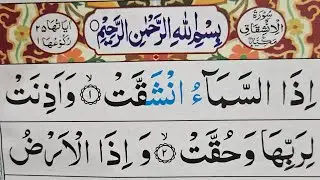 سُورَةُ الْاِنْشِقَاقِ مَكِّيَّةٌ
بِسْمِ اللّٰهِ الرَّحْمٰنِ الرَّحِیْمِ
اٰیَاتُهَا ٢٥ رُكُوْعُهَا ١
اِذَا السَّمَآءُ انْشَقَّتْ ۙ﴿۱﴾ وَ اَذِنَتْ
لِرَبِّهَا وَ حُقَّتْ ۙ﴿۲﴾ وَ اِذَا الْاَرْضُ